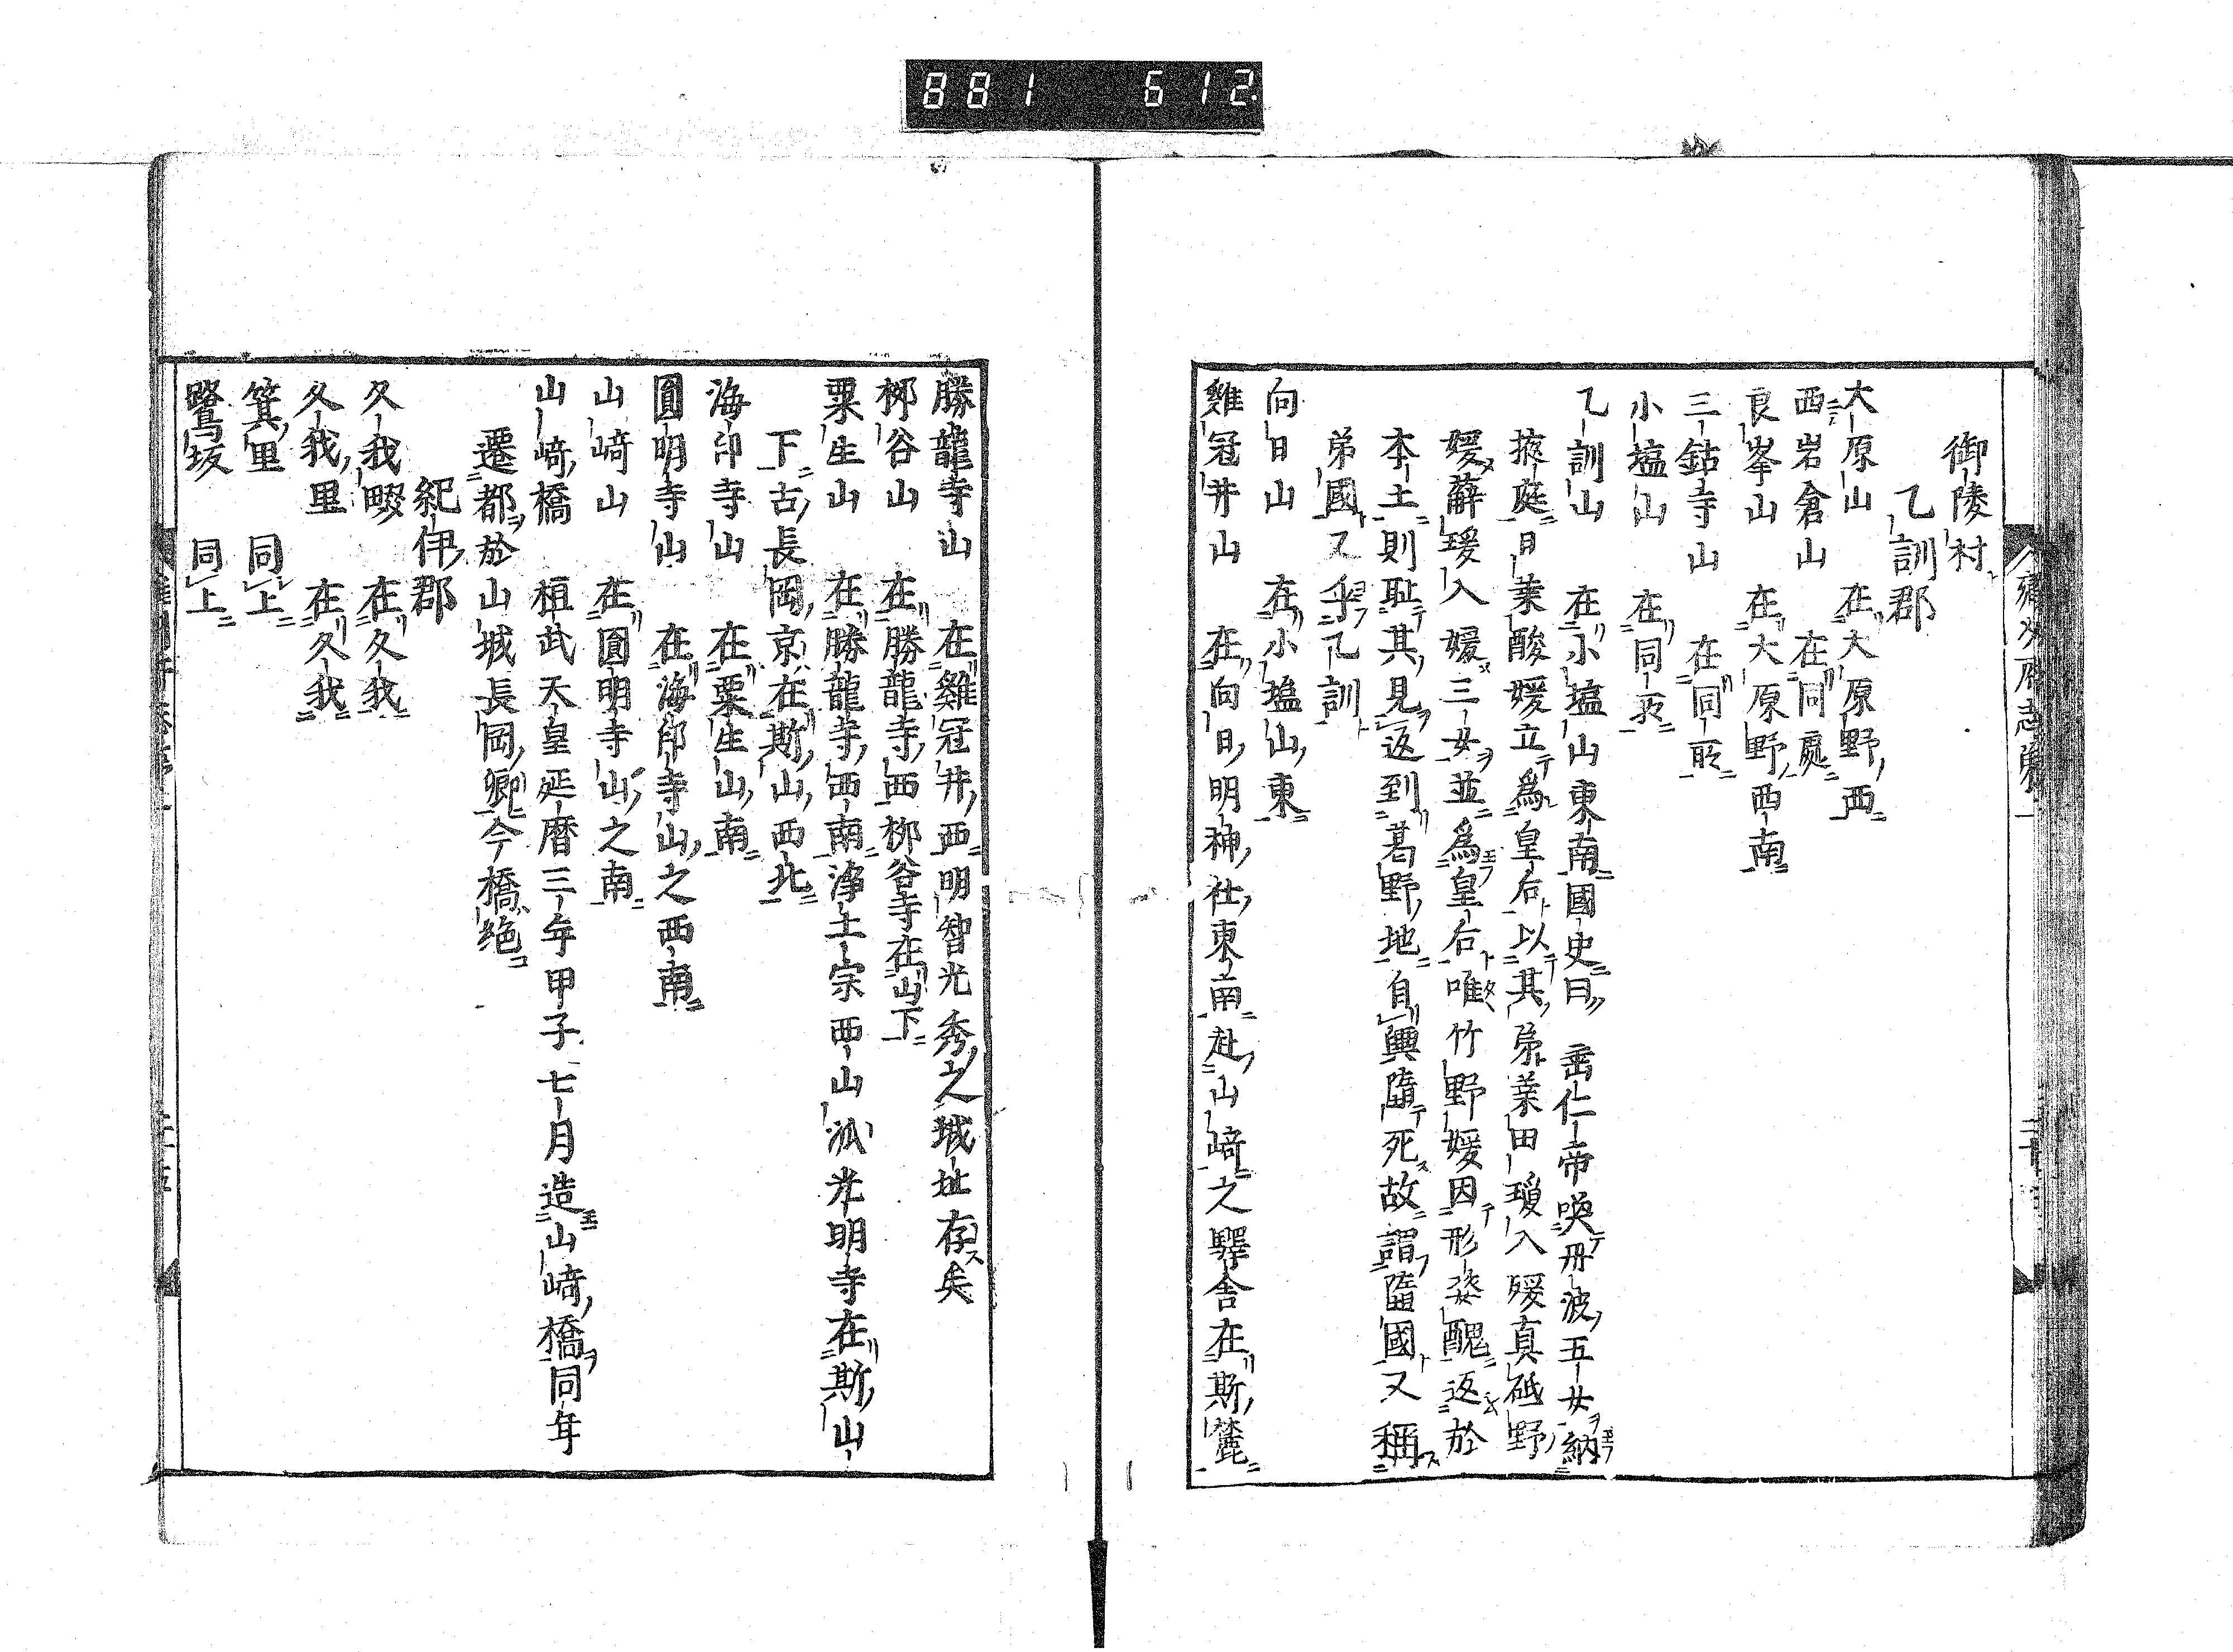 881 612
御陵村
乙訓郡
大原山 在大原野西
西岩倉山 在同處
良峯山 在大原野西南
三鈷寺山 在同所
小塩山 在同所
乙訓山 在小塩山東南國史曰 垂仁帝喚丹波五女納
掖庭日葉酸媛立爲皇后以其弟葉田瓊入媛真砥野
媛薜瓊入媛三女並爲皇后唯竹野媛因形姿醜返於
本土則耻其見返到葛野地自輿隨死故謂隨國又稱
弟國又乎乙訓
向日山 在小塩山東
雞冠井山 在向日明神社東南赴山﨑之驛舍在斯麓
勝龍寺山 在雞冠井西明智光秀之城址存矣
栁谷山 在勝龍寺西栁谷寺在山下
粟生山 在勝龍寺西南淨土宗西山派光明寺在斯山
下古長岡京在斯山西北
海印寺山 在粟生山南
圓明寺山 在海印寺山之西南
山﨑山 在圓明寺山之南
山﨑橋 桓武天皇延暦三年甲子七月造山﨑橋同年
遷都於山城長岡卿今橋絶
紀伊郡
久我畷 在久我
久我里 在久我
箕里 同上
鷺坂 同上